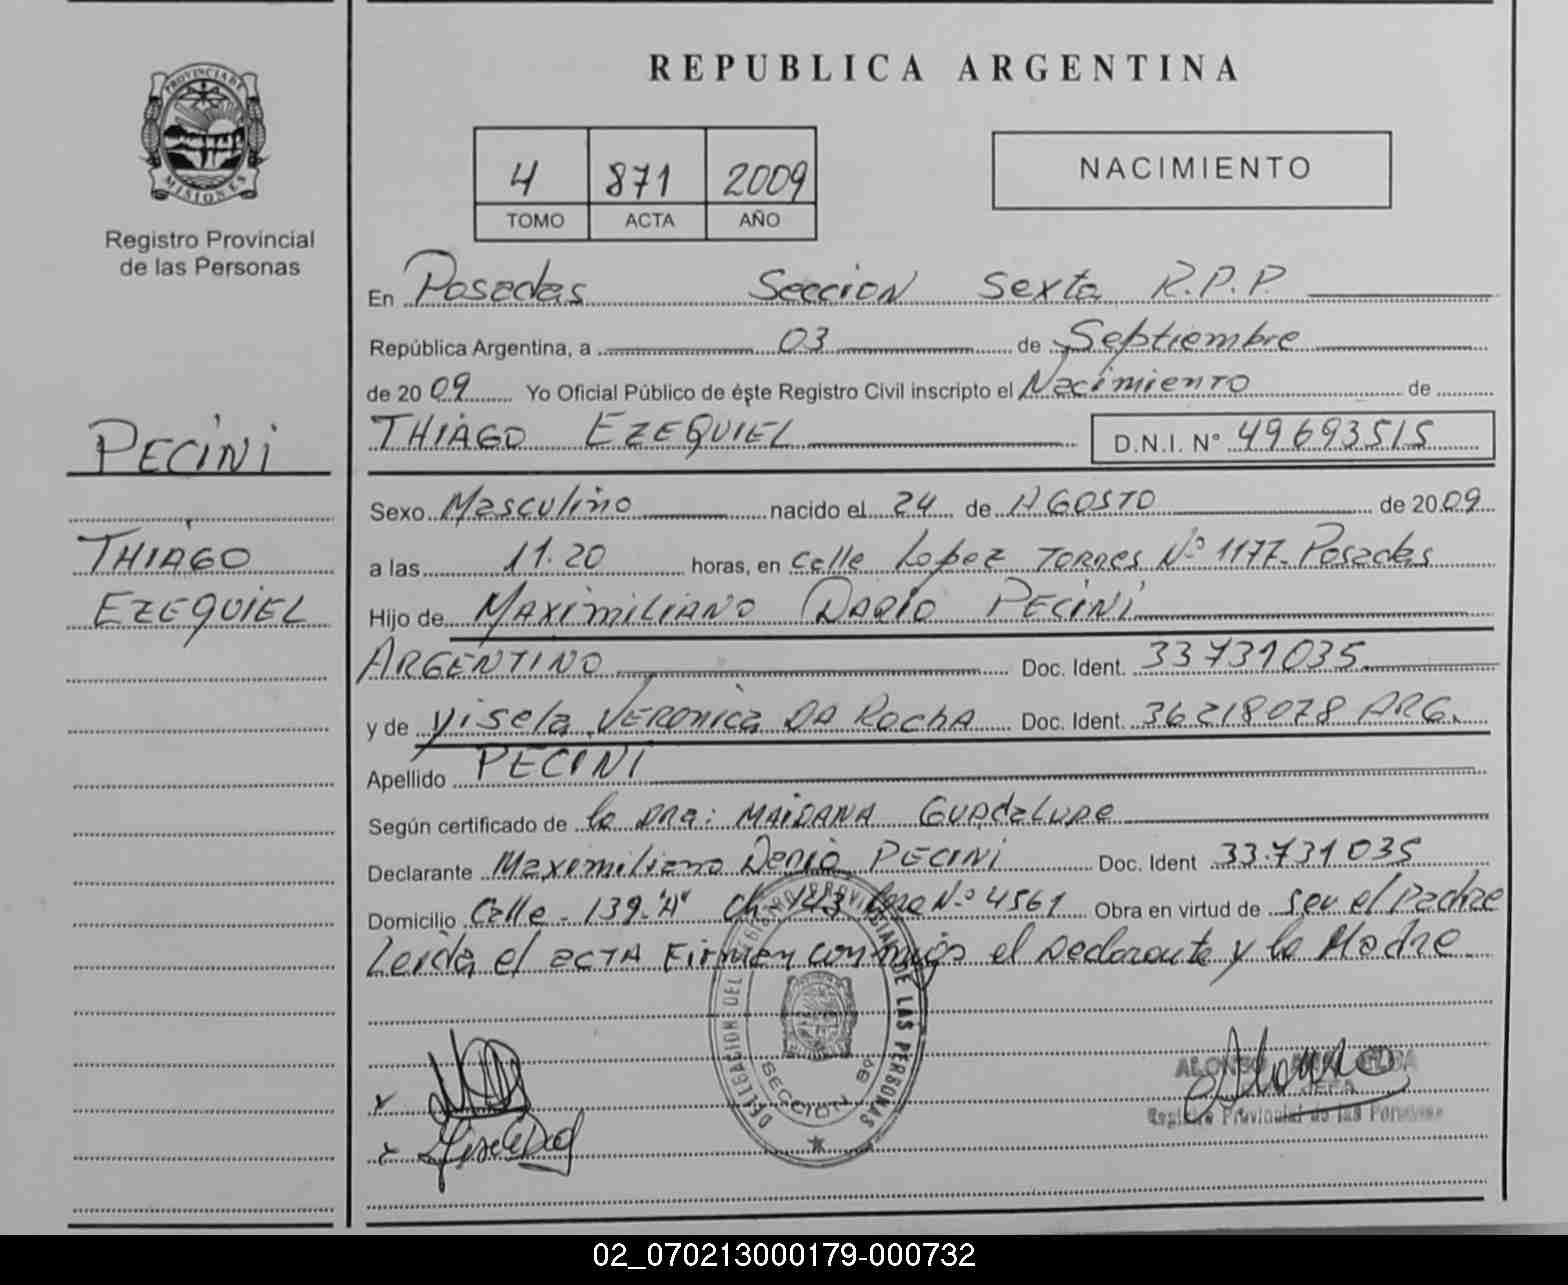 REPUBLICA ARGENTINA
PROVINCIA DE
MISIONES
Registro Provincial
de las Personas
4 871 2009
TOMO ACTA AÑO
NACIMIENTO
En Posadas Sección Sexta R.P.P.
República Argentina, a 03 de Septiembre
de 2009 Yo Oficial Público de éste Registro Civil inscripto el Nacimiento de
THIAGO EZEQUIEL D.N.I. Nº 49693515
PECINI
THIAGO
EZEQUIEL
Sexo Masculino nacido el 24 de AGOSTO de 2009
a las 11.20 horas, en Calle Lopez TORRES Nº 1177 Posadas
Hijo de MAXIMILIANO DARIO PECINI
ARGENTINO Doc. Ident. 33731035
y de Yisela VERONICA DA ROCHA Doc. Ident. 36218078 ARG.
Apellido PECINI
Según certificado de la DRA: MAIDANA Guadalupe
Declarante Maximiliano Dario PECINI Doc. Ident 33.731035
Domicilio Calle - 139 "A" Ch - 143 Nº 4561 Obra en virtud de ser el Padre
Leida el ACTA Firman conmigo el Declarante y la Madre
DELEGACION DEL REGISTRO PROVINCIAL DE LAS PERSONAS
SECCION 6ª
ALONSO
JEFA
Registro Provincial de las Personas
02_070213000179-000732